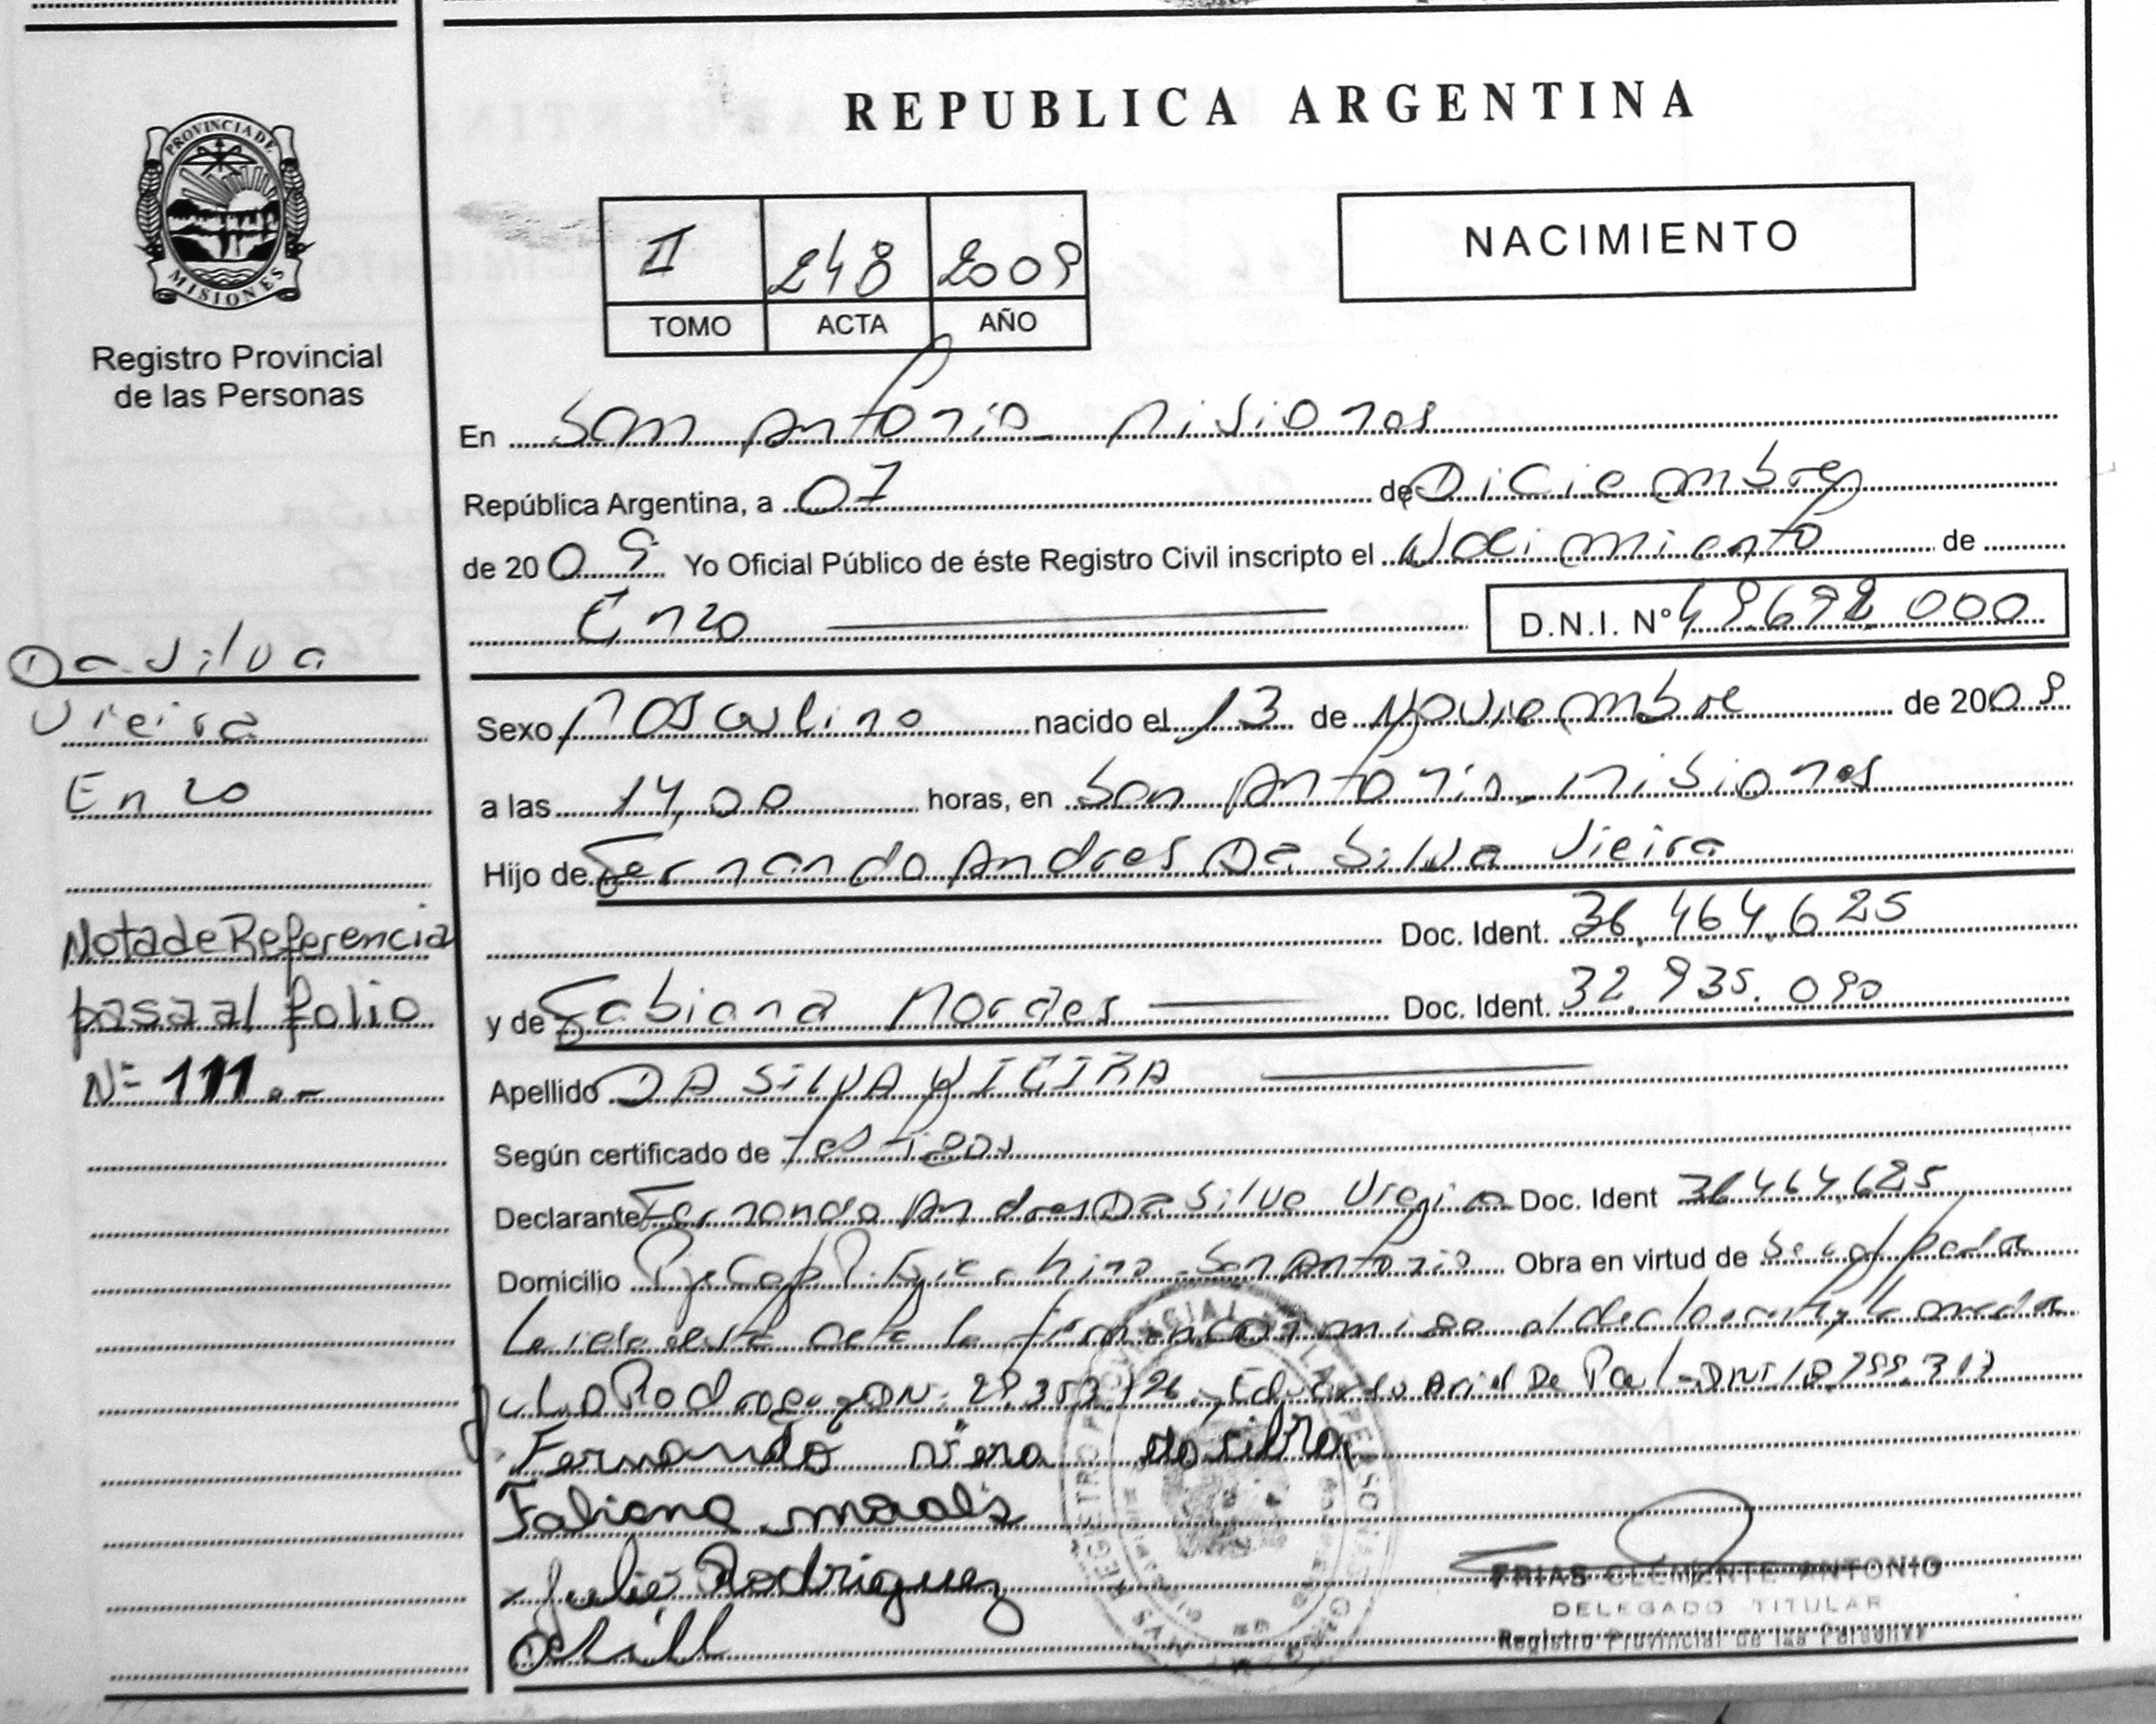 PROVINCIA DE
MISIONES
Registro Provincial
de las Personas
Da Silva
Vieira
Enzo
Nota de Referencia
pasa al folio
Nº 111.-
REPUBLICA ARGENTINA
II 248 2009
TOMO ACTA AÑO
NACIMIENTO
En San Antonio - Misiones
República Argentina, a 07 de Diciembre
de 2009 Yo Oficial Público de éste Registro Civil inscripto el Nacimiento de
Enzo D.N.I. Nº 49.692.000
Sexo Masculino nacido el 13 de Noviembre de 2009
a las 14,00 horas, en San Antonio, Misiones
Hijo de Fernando Andres Da Silva Vieira
Doc. Ident. 36.464.625
y de Fabiana Moraes Doc. Ident. 32.935.090
Apellido DA SILVA VIEIRA
Según certificado de testigos
Declarante Fernando Andres Da Silva Vieira Doc. Ident 36.464.625
Domicilio San Antonio Obra en virtud de
Leida esta acta la firman conmigo el declarante y la madre
Eduardo Ariel De
Fernando viera da silva
Fabiana
Julio Rodriguez
FRIAS CLEMENTE ANTONIO
DELEGADO TITULAR
Registro Provincial de las Personas